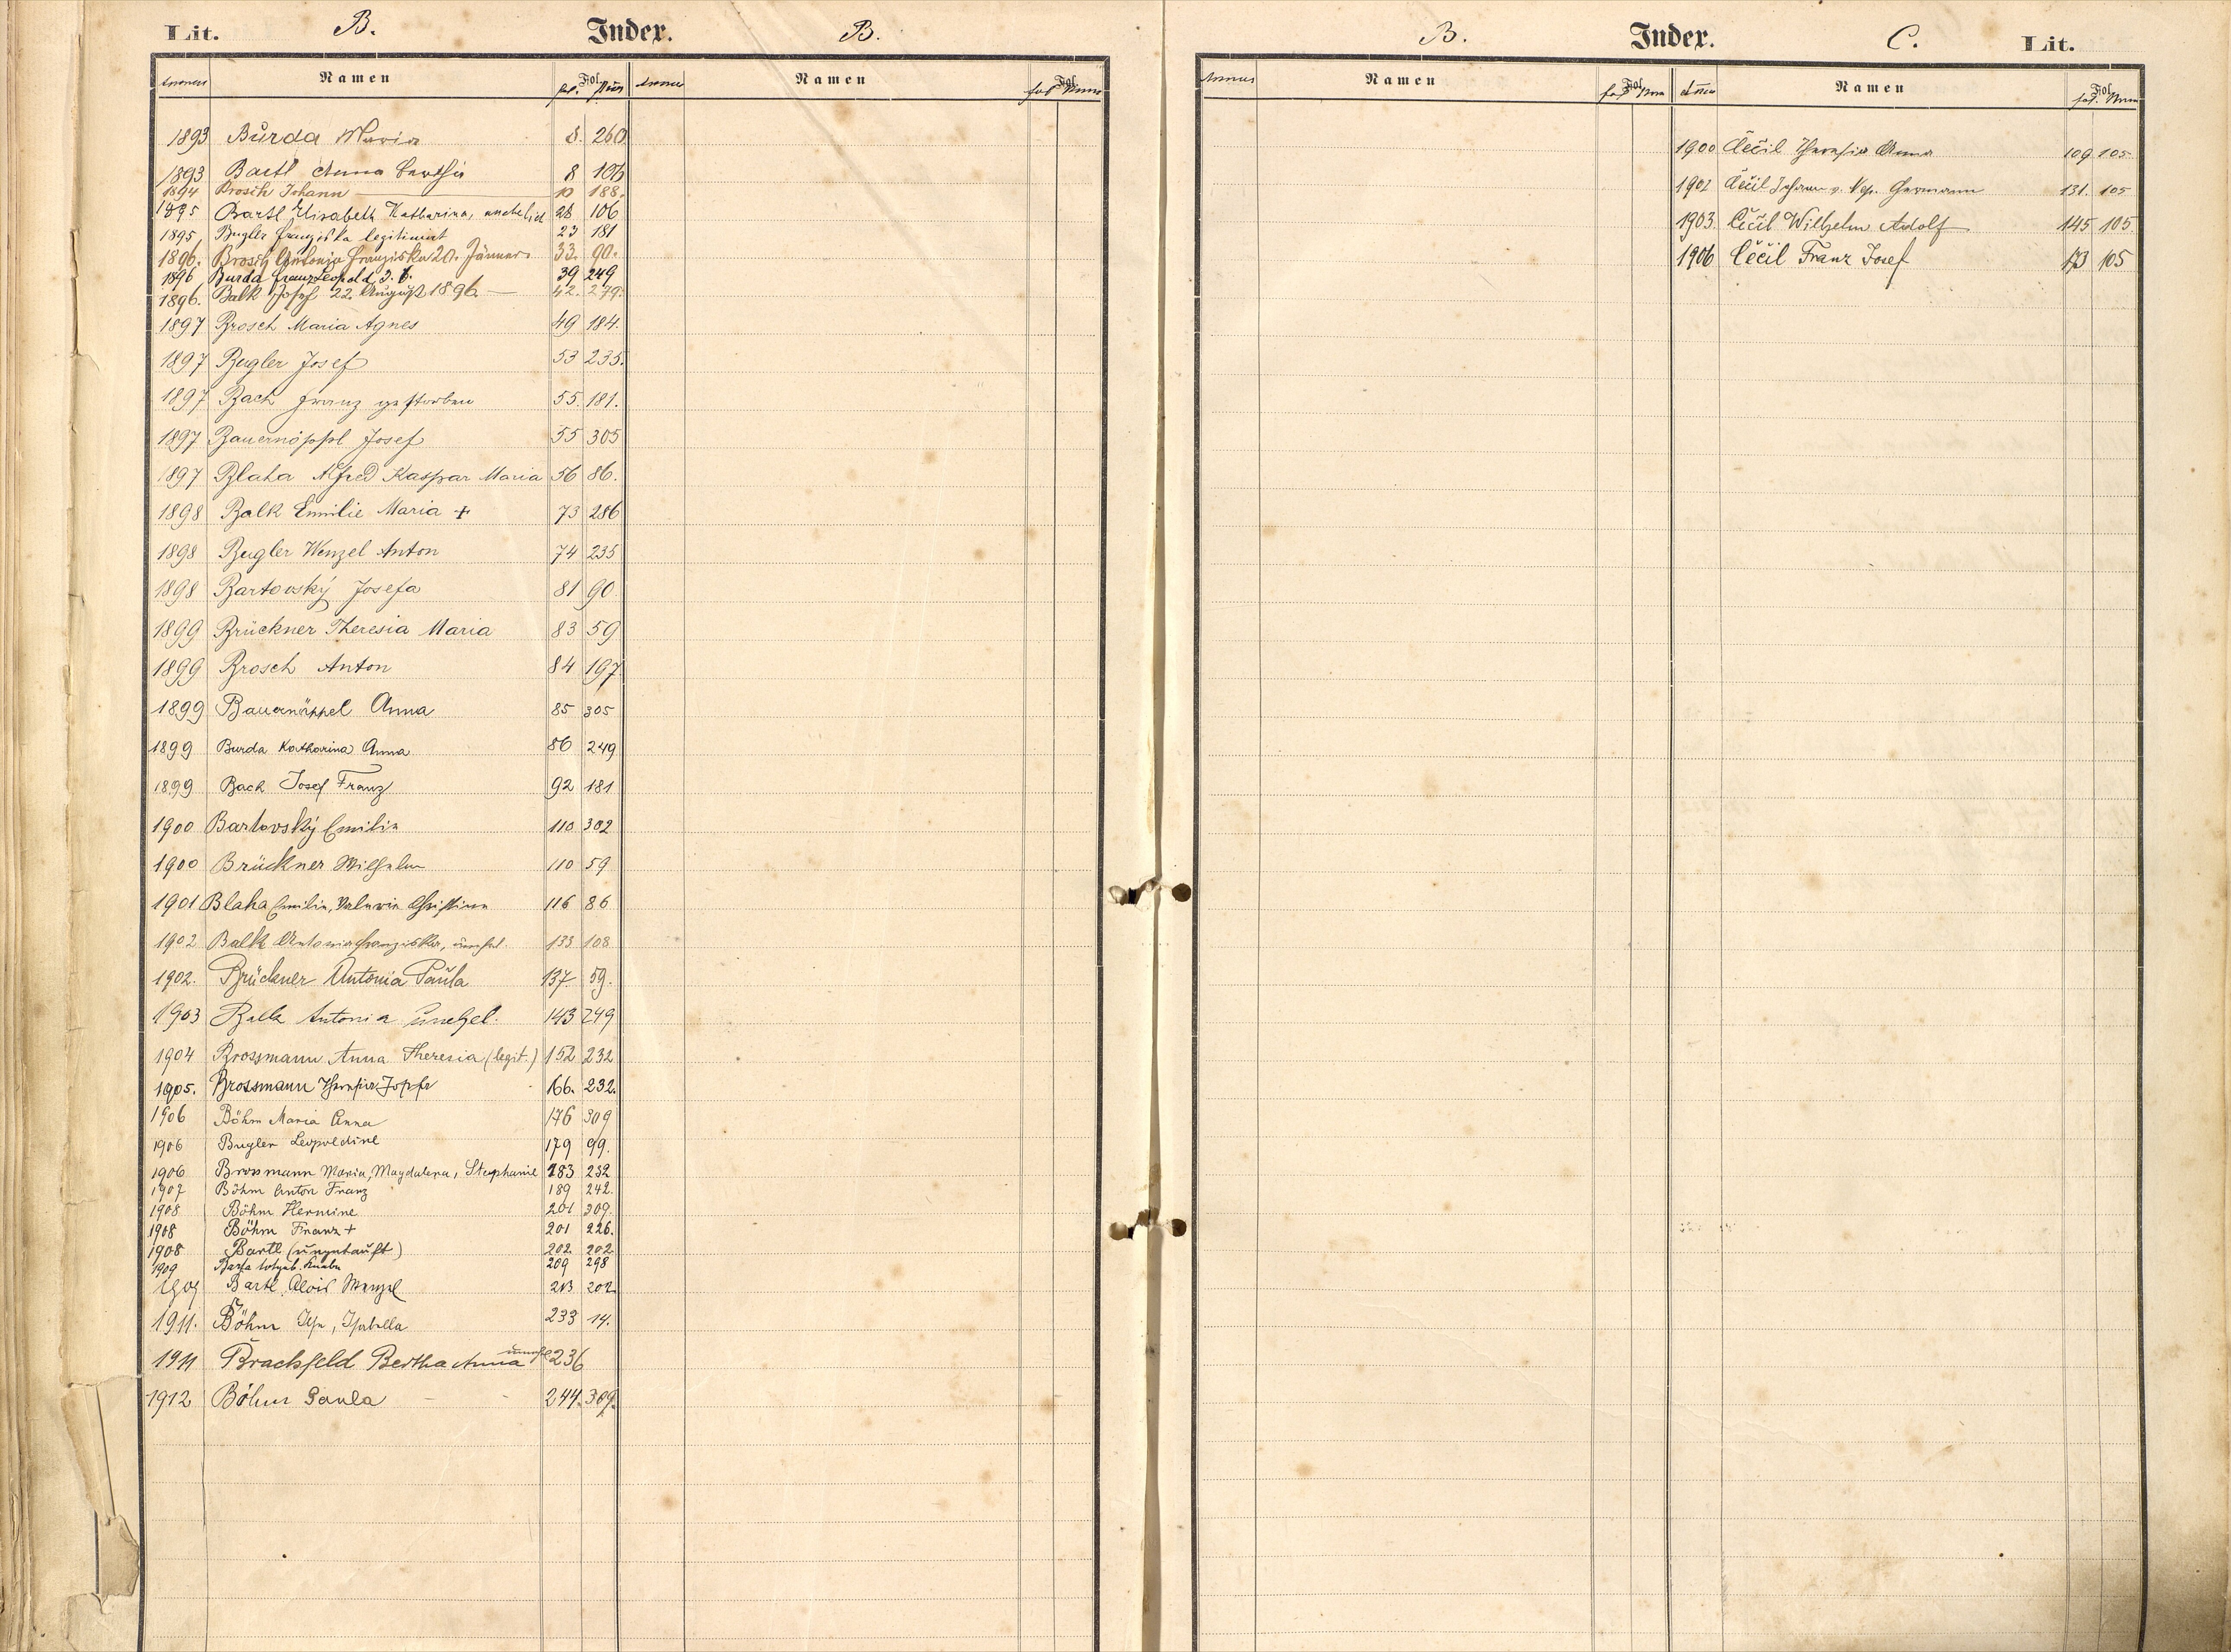 Lit. B. Index. B.
Annus Namen Fol. fol. Num Annus Namen Fol. fol. Num
1893 Burda Maria 8. 260
1893 Bartl Anna Bertha 8 106
1894 Brosch Johann 10 188.
1895 Bartl Elisabeth Katharina, unehelich 28 106
1895. Bugler Franziska legitimirt 23 181
1896. Brosch Antonia Franziska 20. Jänner 33. 90.
1896 Burda Franz Leopold 39 249
1896. Balk Josef 22. August 1896 42. 279.
1897 Brosch Maria Agnes 49 184.
1897 Bugler Josef 53 235.
1897 Bach Franz gestorben 55. 181.
1897 Bauernöppl Josef 55 305
1897 Blaha Alfred Kaspar Maria 56 86.
1898 Balk Emilie Maria + 73 286
1898 Bugler Wenzel Anton 74 235
1898 Bartovský Josefa 81 90
1899 Brückner Theresia Maria 83 59
1899 Brosch Anton 84 197
1899 Bauernöppel Anna 85 305
1899 Burda Katharina Anna 86 249
1899 Bach Josef Franz 92 181
1900 Bartovský Emilie 110 302
1900 Brückner Wilhelm 110 59
1901 Blaha Emilie, Valerie Christine 116 86
1902 Balk Antonia Franziska, unehel. 133 108
1902. Brückner Antonia Paula 137 59.
1903 Balk Antonia unehel. 143 249
1904 Brossmann Anna Theresia (legit.) 152 232
1905. Brossmann Theresia Josefa 166. 232.
1906 Böhm Maria Anna 176 309
1906 Bugler Leopoldine 179 99.
1906 Brossmann Maria, Magdalena, Stephanie 183 232
1907 Böhm Anton Franz 189 242.
1908 Böhm Hermine 201 309.
1908 Böhm Franz + 201 226.
1908 Bartl (ungetauft) 202 202
1909 totgeb. Knabe 209 298
1909 Bartl Alois Wenzel 213 202
1911. Böhm Ilse, Isabella 233 14.
1911 Brachfeld Bertha Anna unehel 236
1912 Böhm Paula 244. 309.
B. Index. C. Lit.
Annus Namen Fol. fol. Num Annus Namen Fol. fol. Num
1900 Čečil Theresia Anna 109 105
1902 Čečil Johann v. Nep. Hermann 131. 105
1903. Čečil Wilhelm Adolf 145 105
1906 Čečil Franz Josef 173 105